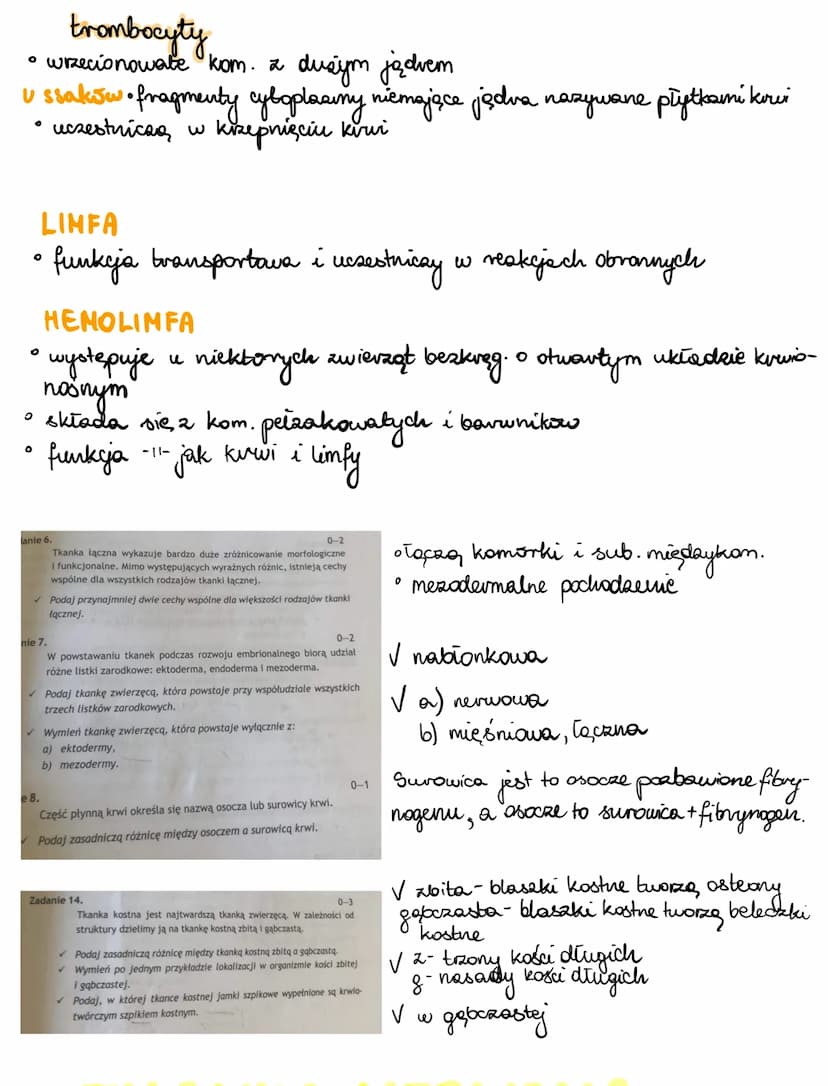 trombocyty
• wrzecionowate kom. z dużym jądrem
U ssaków • fragmenty cytoplazmy niemające jądra nazywane płytkami krwi
• uczestniczą w krzepnięciu krwi
LIMFA
• funkcja transportowa i uczestniczy w reakcjach obronnych
HEMOLIMFA
• występuje u niektorych zwierząt bezkręg. o otwartym układzie krwio-
nośnym
• składa się z kom. pełzakowatych i barwników
• funkcja -11- jak krwi i limfy
anie 6. 0–2
Tkanka łączna wykazuje bardzo duże zróżnicowanie morfologiczne
i funkcjonalne. Mimo występujących wyraźnych różnic, istnieją cechy
wspólne dla wszystkich rodzajów tkanki łącznej.
✓ Podaj przynajmniej dwie cechy wspólne dla większości rodzajów tkanki
łącznej.
• łączą komórki i sub. międzykom.
• mezodermalne pochodzenie
nie 7. 0–2
W powstawaniu tkanek podczas rozwoju embrionalnego biorą udział
różne listki zarodkowe: ektoderma, endoderma i mezoderma.
✓ Podaj tkankę zwierzęcą, która powstaje przy współudziale wszystkich
trzech listków zarodkowych.
✓ Wymień tkankę zwierzęcą, która powstaje wyłącznie z:
a) ektodermy,
b) mezodermy.
√ nabłonkowa
√ a) nerwowa
b) mięśniowa, łączna
e 8. 0–1
Część płynną krwi określa się nazwą osocza lub surowicy krwi.
✓ Podaj zasadniczą różnicę między osoczem a surowicą krwi.
Surowica jest to osocze pozbawione fibry-
nogenu, a osocze to surowica + fibrynogen.
Zadanie 14. 0–3
Tkanka kostna jest najtwardszą tkanką zwierzęcą. W zależności od
struktury dzielimy ją na tkankę kostną zbitą i gąbczastą.
✓ Podaj zasadniczą różnicę między tkanką kostną zbitą a gąbczastą.
✓ Wymień po jednym przykładzie lokalizacji w organizmie kości zbitej
i gąbczastej.
✓ Podaj, w której tkance kostnej jamki szpikowe wypełnione są krwio-
twórczym szpikiem kostnym.
√ zbita - blaszki kostne tworzą osteony
gąbczasta - blaszki kostne tworzą beleczki
kostne
√ z - trzony kości długich
g - nasady kości długich
√ w gąbczastej